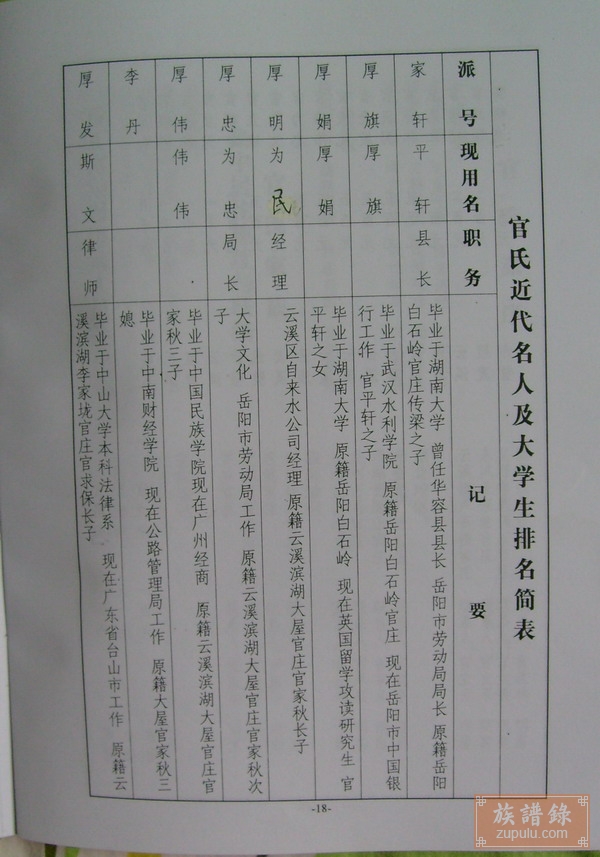 官氏近代名人及大学生排名简表
派号 现用名 职务 记要
家轩 平轩 县长 毕业于湖南大学 曾任华容县县长 岳阳市劳动局局长 原籍岳阳
白石岭官庄传梁之子
厚旗 厚旗 毕业于武汉水利学院 原籍岳阳白石岭官庄 现在岳阳市中国银
行工作 官平轩之子
厚娟 厚娟 毕业于湖南大学 原籍岳阳白石岭 现在英国留学攻读研究生 官
平轩之女
厚明 为民 经理 云溪区自来水公司经理 原籍云溪滨湖大屋官庄官家秋长子
厚忠 为忠 局长 大学文化 岳阳市劳动局工作 原籍云溪滨湖大屋官庄官家秋次
子
厚伟 伟伟 毕业于中国民族学院现在广州经商 原籍云溪滨湖大屋官庄官
家秋三子
李丹 毕业于中南财经学院 现在公路管理局工作 原籍大屋官家秋三
媳
厚发 斯文 律师 毕业于中山大学本科法律系 现在广东省台山市工作 原籍云
溪滨湖李家垅官庄官求保长子
-18-
族譜錄
zupulu.com